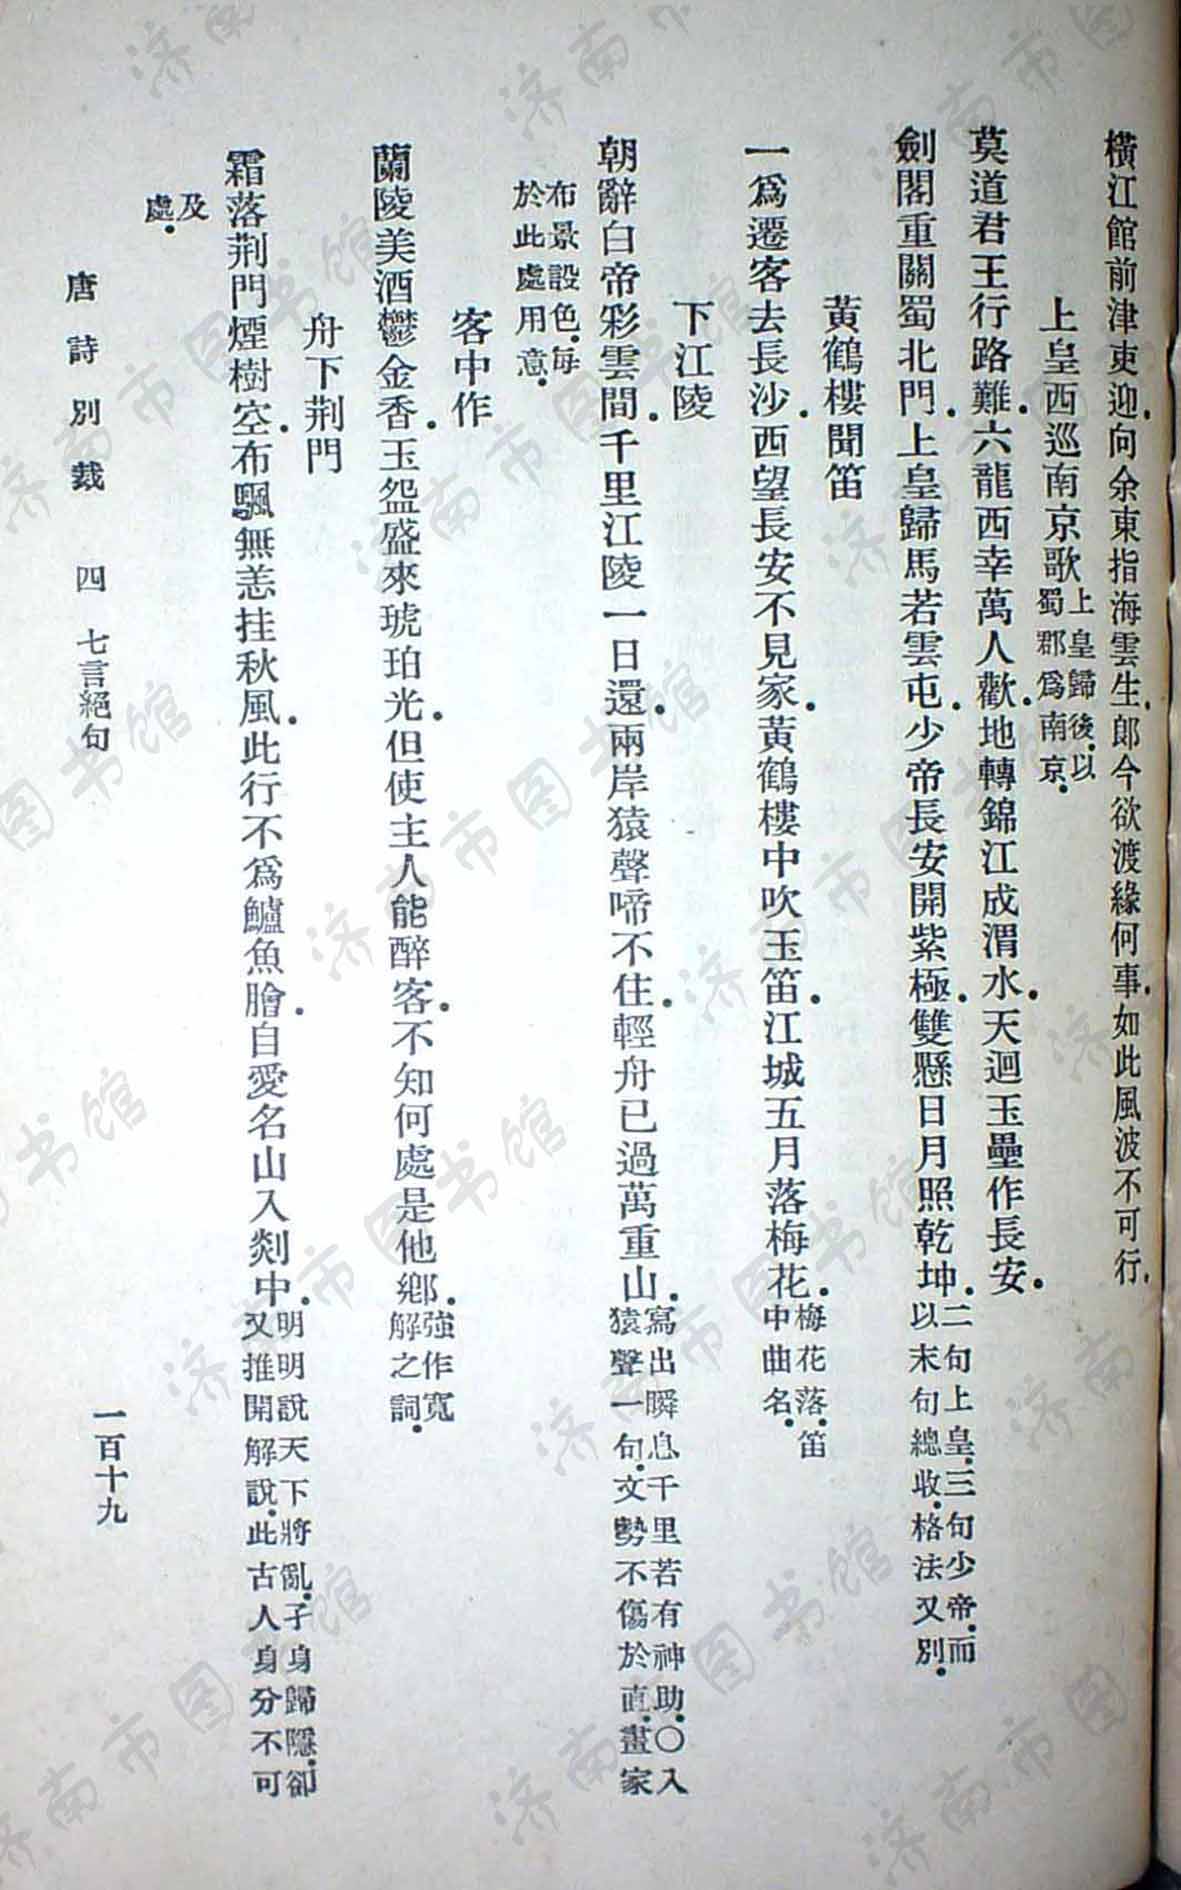 橫江館前津吏迎．向余東指海雲生．郞今欲渡緣何事．如此風波不可行．
上皇西巡南京歌 上皇歸後．以蜀郡爲南京．
莫道君王行路難．六龍西幸萬人歡．地轉錦江成渭水．天迴玉壘作長安．
劍閣重關蜀北門．上皇歸馬若雲屯．少帝長安開紫極．雙懸日月照乾坤．二句上皇．三句少帝．而以末句總收．格法又別．
黃鶴樓聞笛
一爲遷客去長沙．西望長安不見家．黃鶴樓中吹玉笛．江城五月落梅花．梅花落．笛中曲名．
下江陵
朝辭白帝彩雲間．千里江陵一日還．兩岸猿聲啼不住．輕舟已過萬重山．寫出瞬息千里若有神助．〇入猿聲一句．文勢不傷於直．畫家
布景設色．每於此處用意．
客中作
蘭陵美酒鬱金香．玉盌盛來琥珀光．但使主人能醉客．不知何處是他鄉．強作寬解之詞．
舟下荆門
霜落荆門煙樹空．布颿無恙挂秋風．此行不爲鱸魚膾．自愛名山入剡中．明明說天下將亂．孑身歸隱．卻又推開解說．此古人身分不可
及處．
唐詩別裁 四 七言絕句 一百十九
济南市图书馆